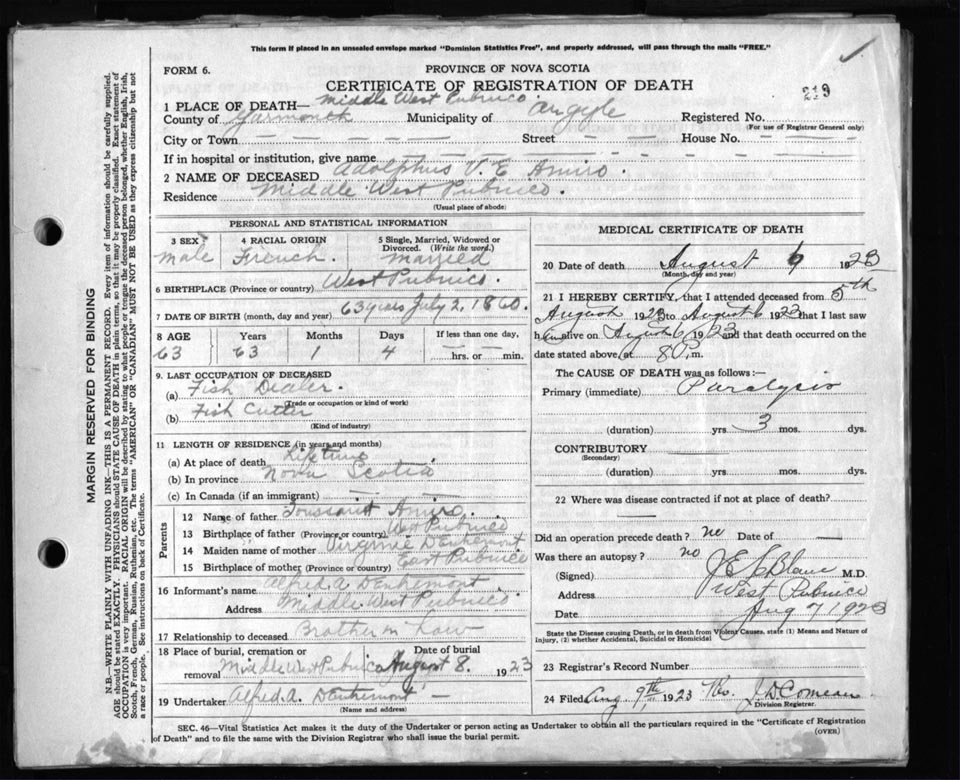 This form if placed in an unsealed envelope marked "Dominion Statistics Free", and properly addressed, will pass through the mails "FREE."
FORM 6.
PROVINCE OF NOVA SCOTIA
CERTIFICATE OF REGISTRATION OF DEATH
219
1 PLACE OF DEATH— Middle West Pubnico
County of Yarmouth Municipality of Argyle Registered No.
(For use of Registrar General only)
City or Town — Street — House No. —
If in hospital or institution, give name —
2 NAME OF DECEASED Adolphus V. E Amiro.
Residence Middle West Pubnico.
(Usual place of abode)
PERSONAL AND STATISTICAL INFORMATION
3 SEX 4 RACIAL ORIGIN 5 Single, Married, Widowed or Divorced. (Write the word.)
Male French. Married
6 BIRTHPLACE (Province or country) West Pubnico.
7 DATE OF BIRTH (month, day and year) 63 years July 2, 1860.
8 AGE Years Months Days If less than one day,
63 63 1 4 hrs. or min.
9. LAST OCCUPATION OF DECEASED
(a) Fish Dealer.
(Trade or occupation or kind of work)
(b) Fish Cutter
(Kind of industry)
11 LENGTH OF RESIDENCE (in years and months)
(a) At place of death Lifetime
(b) In province Nova Scotia
(c) In Canada (if an immigrant) —
Parents
12 Name of father Toussaint Amiro.
13 Birthplace of father (Province or country) West Pubnico
14 Maiden name of mother Virginie D'Entremont
15 Birthplace of mother (Province or country) East Pubnico
16 Informant's name Alfred A. D'Entremont
Address Middle West Pubnico.
17 Relationship to deceased Brother in Law
18 Place of burial, cremation or removal Date of burial
Middle West Pubnico August 8. 1923
19 Undertaker Alfred A. D'Entremont —
(Name and address)
MEDICAL CERTIFICATE OF DEATH
20 Date of death August 6 1923
(Month, day and year)
21 I HEREBY CERTIFY, that I attended deceased from 5th
August 1923 to August 6 1923 that I last saw
him alive on August 6 1923 and that death occurred on the
date stated above, at m.
The CAUSE OF DEATH was as follows:—
Primary (immediate) Paralysis
(duration) yrs 3 mos. dys.
CONTRIBUTORY —
(Secondary)
(duration) yrs. mos. dys.
22 Where was disease contracted if not at place of death?
—
Did an operation precede death? no Date of —
Was there an autopsy? no
(Signed) J E LeBlanc M.D.
Address West Pubnico
Date Aug 7 1923
State the Disease causing Death, or in death from Violent Causes, state (1) Means and Nature of Injury, (2) whether Accidental, Suicidal or Homicidal
23 Registrar's Record Number
24 Filed Aug. 9th 1923 J. D. Comeau
Division Registrar.
SEC. 46—Vital Statistics Act makes it the duty of the Undertaker or person acting as Undertaker to obtain all the particulars required in the "Certificate of Registration
of Death" and to file the same with the Division Registrar who shall issue the burial permit.
(OVER)
MARGIN RESERVED FOR BINDING
N.B.—WRITE PLAINLY WITH UNFADING INK—THIS IS A PERMANENT RECORD. Every item of information should be carefully supplied.
AGE should be stated EXACTLY. PHYSICIANS should STATE CAUSE OF DEATH in plain terms, so that it may be properly classified. Exact statement of
OCCUPATION is very important. RACIAL ORIGIN will be described by stating to what people or tongue the deceased person belonged, whether English, Irish,
Scotch, French, German, Russian, Ruthenian, etc. The terms "AMERICAN" OR "CANADIAN" MUST NOT BE USED as they express citizenship but not
a race or people. See instructions on back of Certificate.